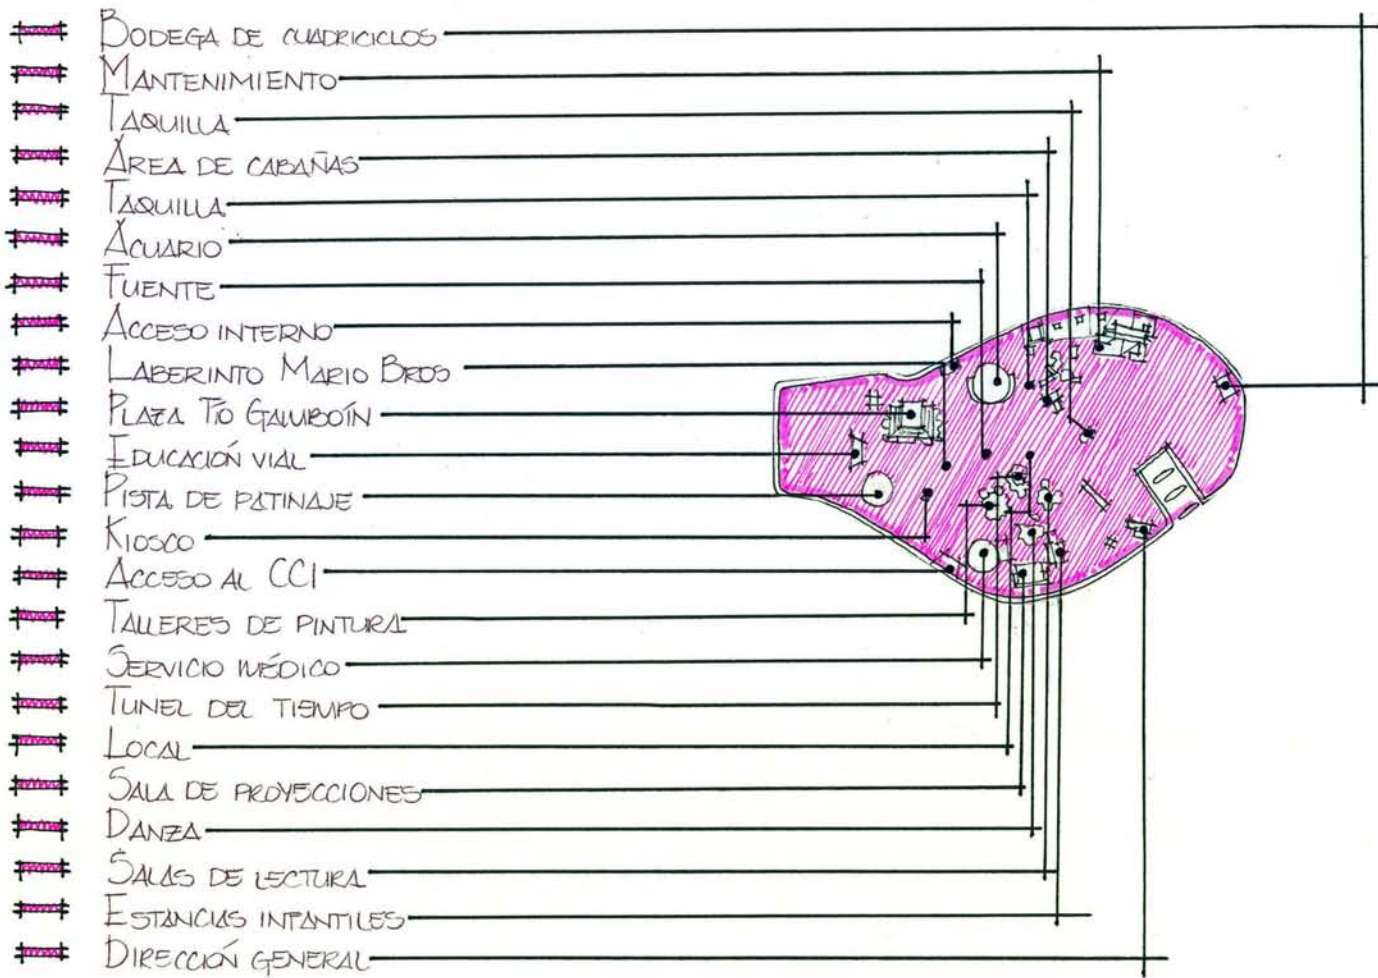 BODEGA DE CUADRICICLOS
MANTENIMIENTO
TAQUILLA
ÁREA DE CABAÑAS
TAQUILLA
ACUARIO
FUENTE
ACCESO INTERNO
LABERINTO MARIO BROS
PLAZA TÍO GAMBOÍN
EDUCACIÓN VIAL
PISTA DE PATINAJE
KIOSCO
ACCESO AL CCI
TALLERES DE PINTURA
SERVICIO MÉDICO
TUNEL DEL TIEMPO
LOCAL
SALA DE PROYECCIONES
DANZA
SALAS DE LECTURA
ESTANCIAS INFANTILES
DIRECCIÓN GENERAL